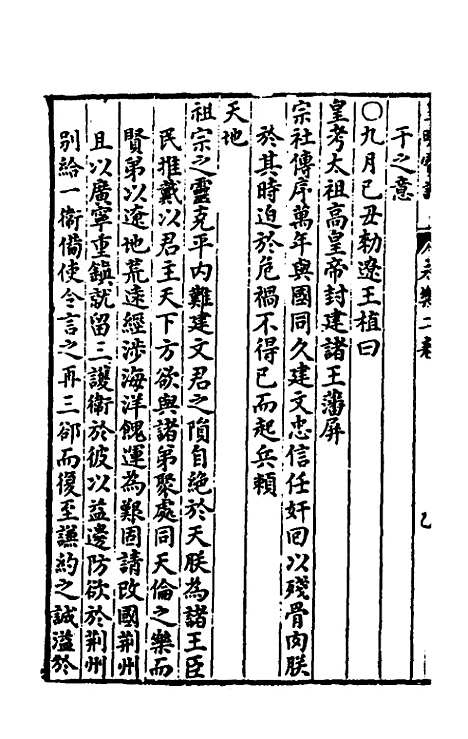 干之意
○九月己丑勅遼王植曰
皇考太祖高皇帝封建諸王藩屏
宗社傳序萬年與國同久建文忠信任奸回以殘骨肉朕
於其時迫於危禍不得已而起兵賴
天地
祖宗之靈克平內難建文君之隕自絕於天朕為諸王臣
民推戴以君主天下方欲與諸弟聚處同天倫之樂而
賢弟以遼地荒遠經涉海洋餽運為艱固請改國荆州
且以廣寧重鎮就留三護衛於彼以益邊防欲於荆州
別給一衛備使令言之再三卻而復至謙約之誠溢於